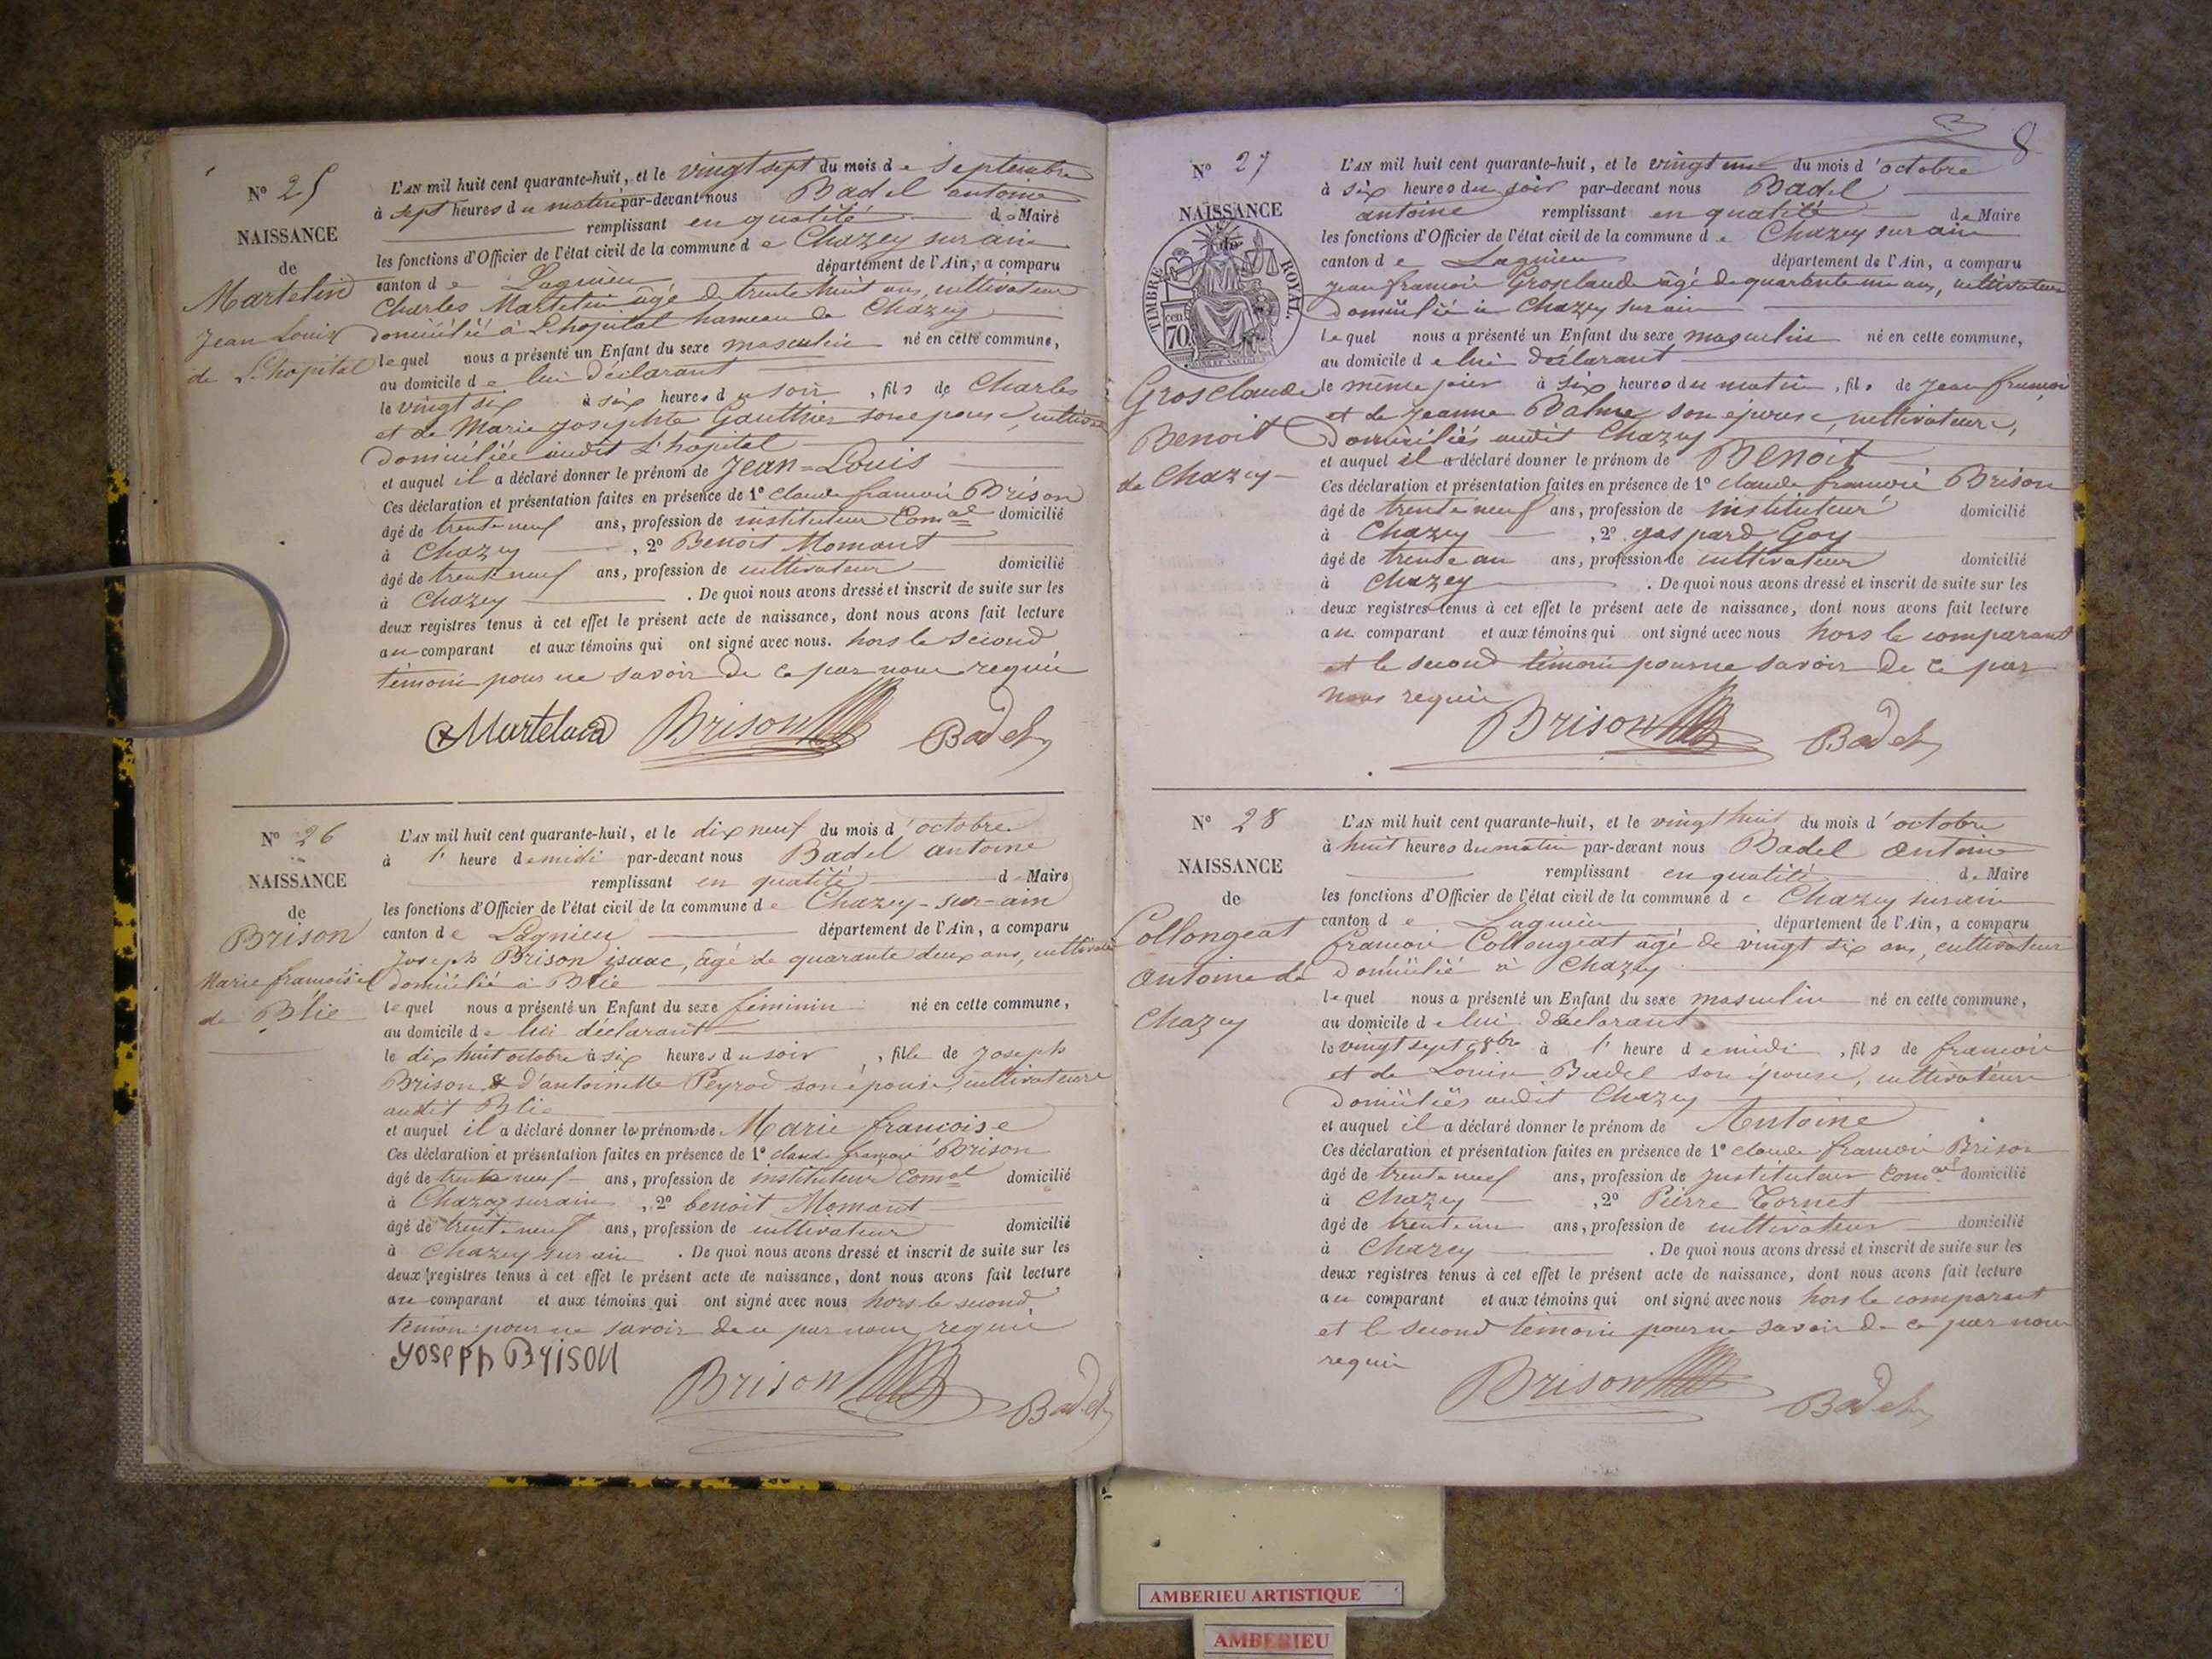 N° 25
NAISSANCE
de
Martelin
Jean Louis
de L'hopital
L'AN mil huit cent quarante-huit, et le vingt sept du mois de Septembre
à sept heures du matin par-devant nous Badel antoine
remplissant en qualité de Maire
les fonctions d'Officier de l'état civil de la commune de Chazey sur ain
canton de Lagnieu département de l'Ain, a comparu
Charles Martelin âgé de trente huit ans, cultivateur
domicilié à L'hopital hameau de Chazey
lequel nous a présenté un Enfant du sexe masculin né en cette commune,
au domicile de lui déclarant
le vingt six à six heures du soir, fils de Charles
et de Marie josephte Gauthier son epouse, cultiv
domiciliée audit L'hopital
et auquel il a déclaré donner le prénom de Jean=Louis
Ces déclaration et présentation faites en présence de 1° claude francois Brison
âgé de trente neuf ans, profession de instituteur Comal domicilié
à Chazey, 2° Benoit Momont
âgé de trente neuf ans, profession de cultivateur domicilié
à Chazey. De quoi nous avons dressé et inscrit de suite sur les
deux registres tenus à cet effet le présent acte de naissance, dont nous avons fait lecture
au comparant et aux témoins qui ont signé avec nous. hors le second
témoin pour ne savoir de ce par nous requis
Brison Badel
N° 26
NAISSANCE
de
Brison
Marie francoise
de Blie
L'AN mil huit cent quarante-huit, et le dix neuf du mois d'octobre
à 1' heure de midi par-devant nous Badel antoine
remplissant en qualité de Maire
les fonctions d'Officier de l'état civil de la commune de Chazey-sur-ain
canton de Lagnieu département de l'Ain, a comparu
Joseph Brison isaac, âgé de quarante deux ans, cultivateur
domicilié à Blie
lequel nous a présenté un Enfant du sexe féminin né en cette commune,
au domicile de lui déclarant
le dix huit octobre à six heures du soir, fille de Joseph
Brison & d'antoinette Peyrod son épouse, cultivateurs
audit Blie
et auquel il a déclaré donner les prénoms de Marie francoise
Ces déclaration et présentation faites en présence de 1° claude francois Brison
âgé de trente neuf ans, profession de instituteur Comal domicilié
à Chazey sur ain, 2° benoit Momont
âgé de trente neuf ans, profession de cultivateur domicilié
à Chazey sur ain. De quoi nous avons dressé et inscrit de suite sur les
deux registres tenus à cet effet le présent acte de naissance, dont nous avons fait lecture
au comparant et aux témoins qui ont signé avec nous hors le second
témoin pour ne savoir de ce par nous requis
Joseph Brison Brison Badel
8
N° 27
NAISSANCE
de
TIMBRE ROYAL.
70 cen
Grosclaude
Benoit
de Chazey
L'AN mil huit cent quarante-huit, et le vingt un du mois d'octobre
à six heures du soir par-devant nous Badel
antoine remplissant en qualité de Maire
les fonctions d'Officier de l'état civil de la commune de Chazey sur ain
canton de Lagnieu département de l'Ain, a comparu
Jean francois Grosclaude âgé de quarante un ans, cultivateur
domicilié à Chazey sur ain
lequel nous a présenté un Enfant du sexe masculin né en cette commune,
au domicile de lui déclarant
le même jour à six heures du matin, fils de Jean francois
et de Jeanne Balme son épouse, cultivateurs,
domiciliés audit Chazey
et auquel il a déclaré donner le prénom de Benoit
Ces déclaration et présentation faites en présence de 1° claude francois Brison
âgé de trente neuf ans, profession de instituteur domicilié
à Chazey, 2° gaspard Goy
âgé de trente un ans, profession de cultivateur domicilié
à Chazey. De quoi nous avons dressé et inscrit de suite sur les
deux registres tenus à cet effet le présent acte de naissance, dont nous avons fait lecture
au comparant et aux témoins qui ont signé avec nous hors le comparant
et le second témoin pour ne savoir de ce par
nous requis
Brison Badel
N° 28
NAISSANCE
de
Collongeat
Antoine de
Chazey
L'AN mil huit cent quarante-huit, et le vingt huit du mois d'octobre
à huit heures du matin par-devant nous Badel Antoine
remplissant en qualité de Maire
les fonctions d'Officier de l'état civil de la commune de Chazey sur ain
canton de Lagnieu département de l'Ain, a comparu
francois Collongeat âgé de vingt six ans, cultivateur
Domicilié à Chazey
lequel nous a présenté un Enfant du sexe masculin né en cette commune,
au domicile de lui déclarant
le vingt sept 8bre à 1' heure de midi, fils de francois
et de Louise Badel son épouse, cultivateurs
Domiciliés audit Chazey
et auquel il a déclaré donner le prénom de Antoine
Ces déclaration et présentation faites en présence de 1° claude francois Brison
âgé de trente neuf ans, profession de Instituteur Comal domicilié
à Chazey, 2° Pierre Cornet
âgé de trente un ans, profession de cultivateur domicilié
à Chazey. De quoi nous avons dressé et inscrit de suite sur les
deux registres tenus à cet effet le présent acte de naissance, dont nous avons fait lecture
au comparant et aux témoins qui ont signé avec nous hors le comparant
et le second témoin pour ne savoir de ce par nous
requis
Brison Badel
AMBERIEU ARTISTIQUE
AMBERIEU